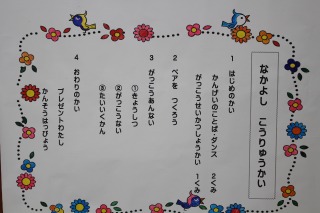 なかよし こうりゅうかい
1 はじめのかい
かんげいのことば・ダンス 2くみ
がっこうせいかつしょうかい 1くみ
2 ペアを つくろう
3 がっこうあんない
①きょうしつ
②がっこうない
③たいいくかん
4 おわりのかい
プレゼントわたし
かんそうはっぴょう